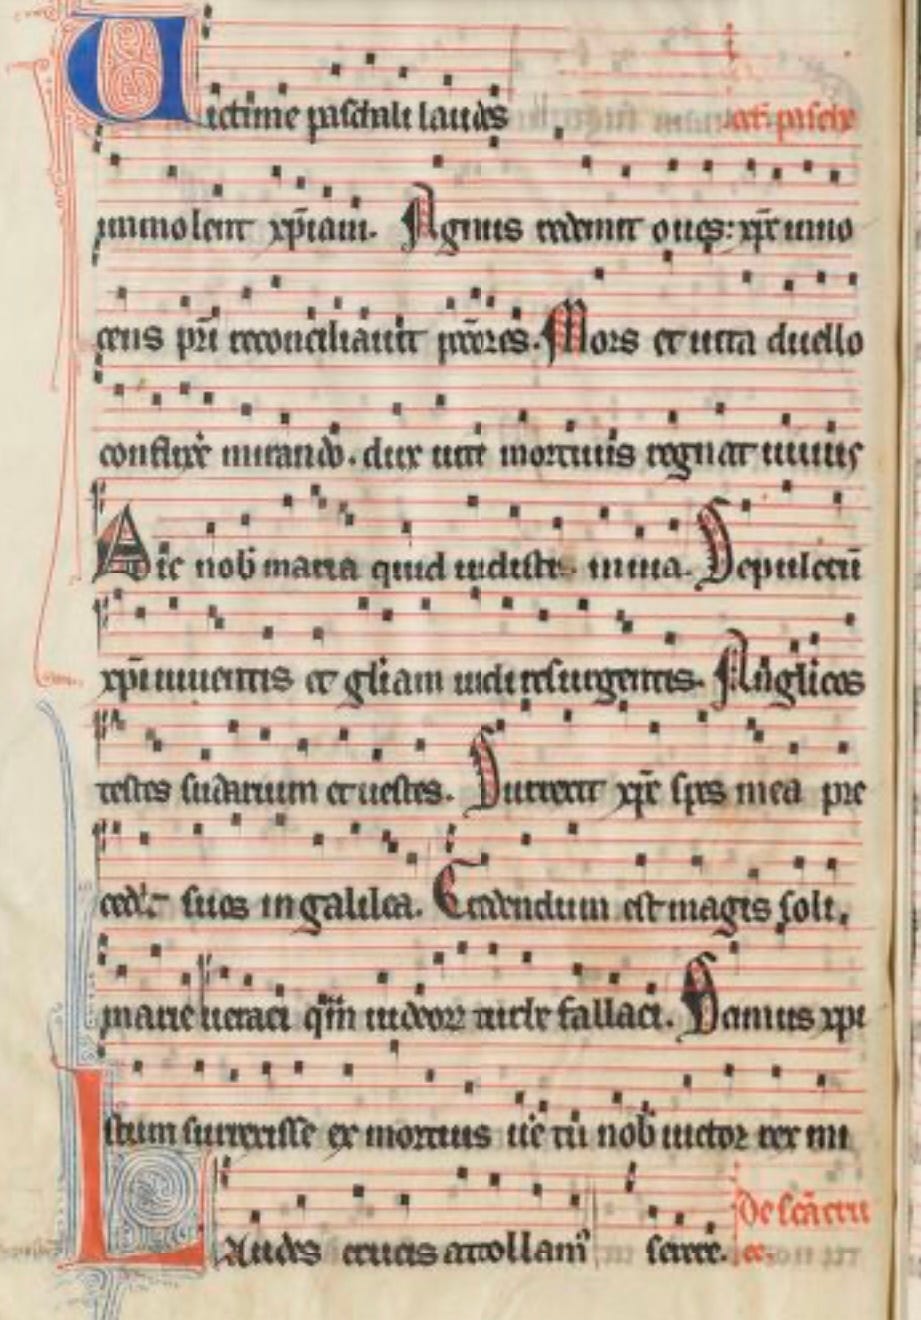 Uictime paschali laudes
immolent xp̄iani. Agnus redemit oues: xp̄c inno
cens pr̄i reconciliauit pctōres. Mors et uita duello
conflixer̄ mirando. dux uite mortuus regnat uiuus
Dic nob̄ maria quid uidisti in uia. Sepulcrū
xp̄i uiuentis et gl̄iam uidi resurgentis. Angl̄icos
testes sudarium et uestes. Surrexit xp̄c spes mea pre
cedet suos in galilea. Credendum est magis soli
marie ueraci qm̄ iudeoꝝ turbe fallaci. Scimus xp̄i
stum surrexisse ex mortuis ue tū nob̄ uictor rex mi
Laudes crucis attollamꝰ serere. De sc̄a cru
ce.